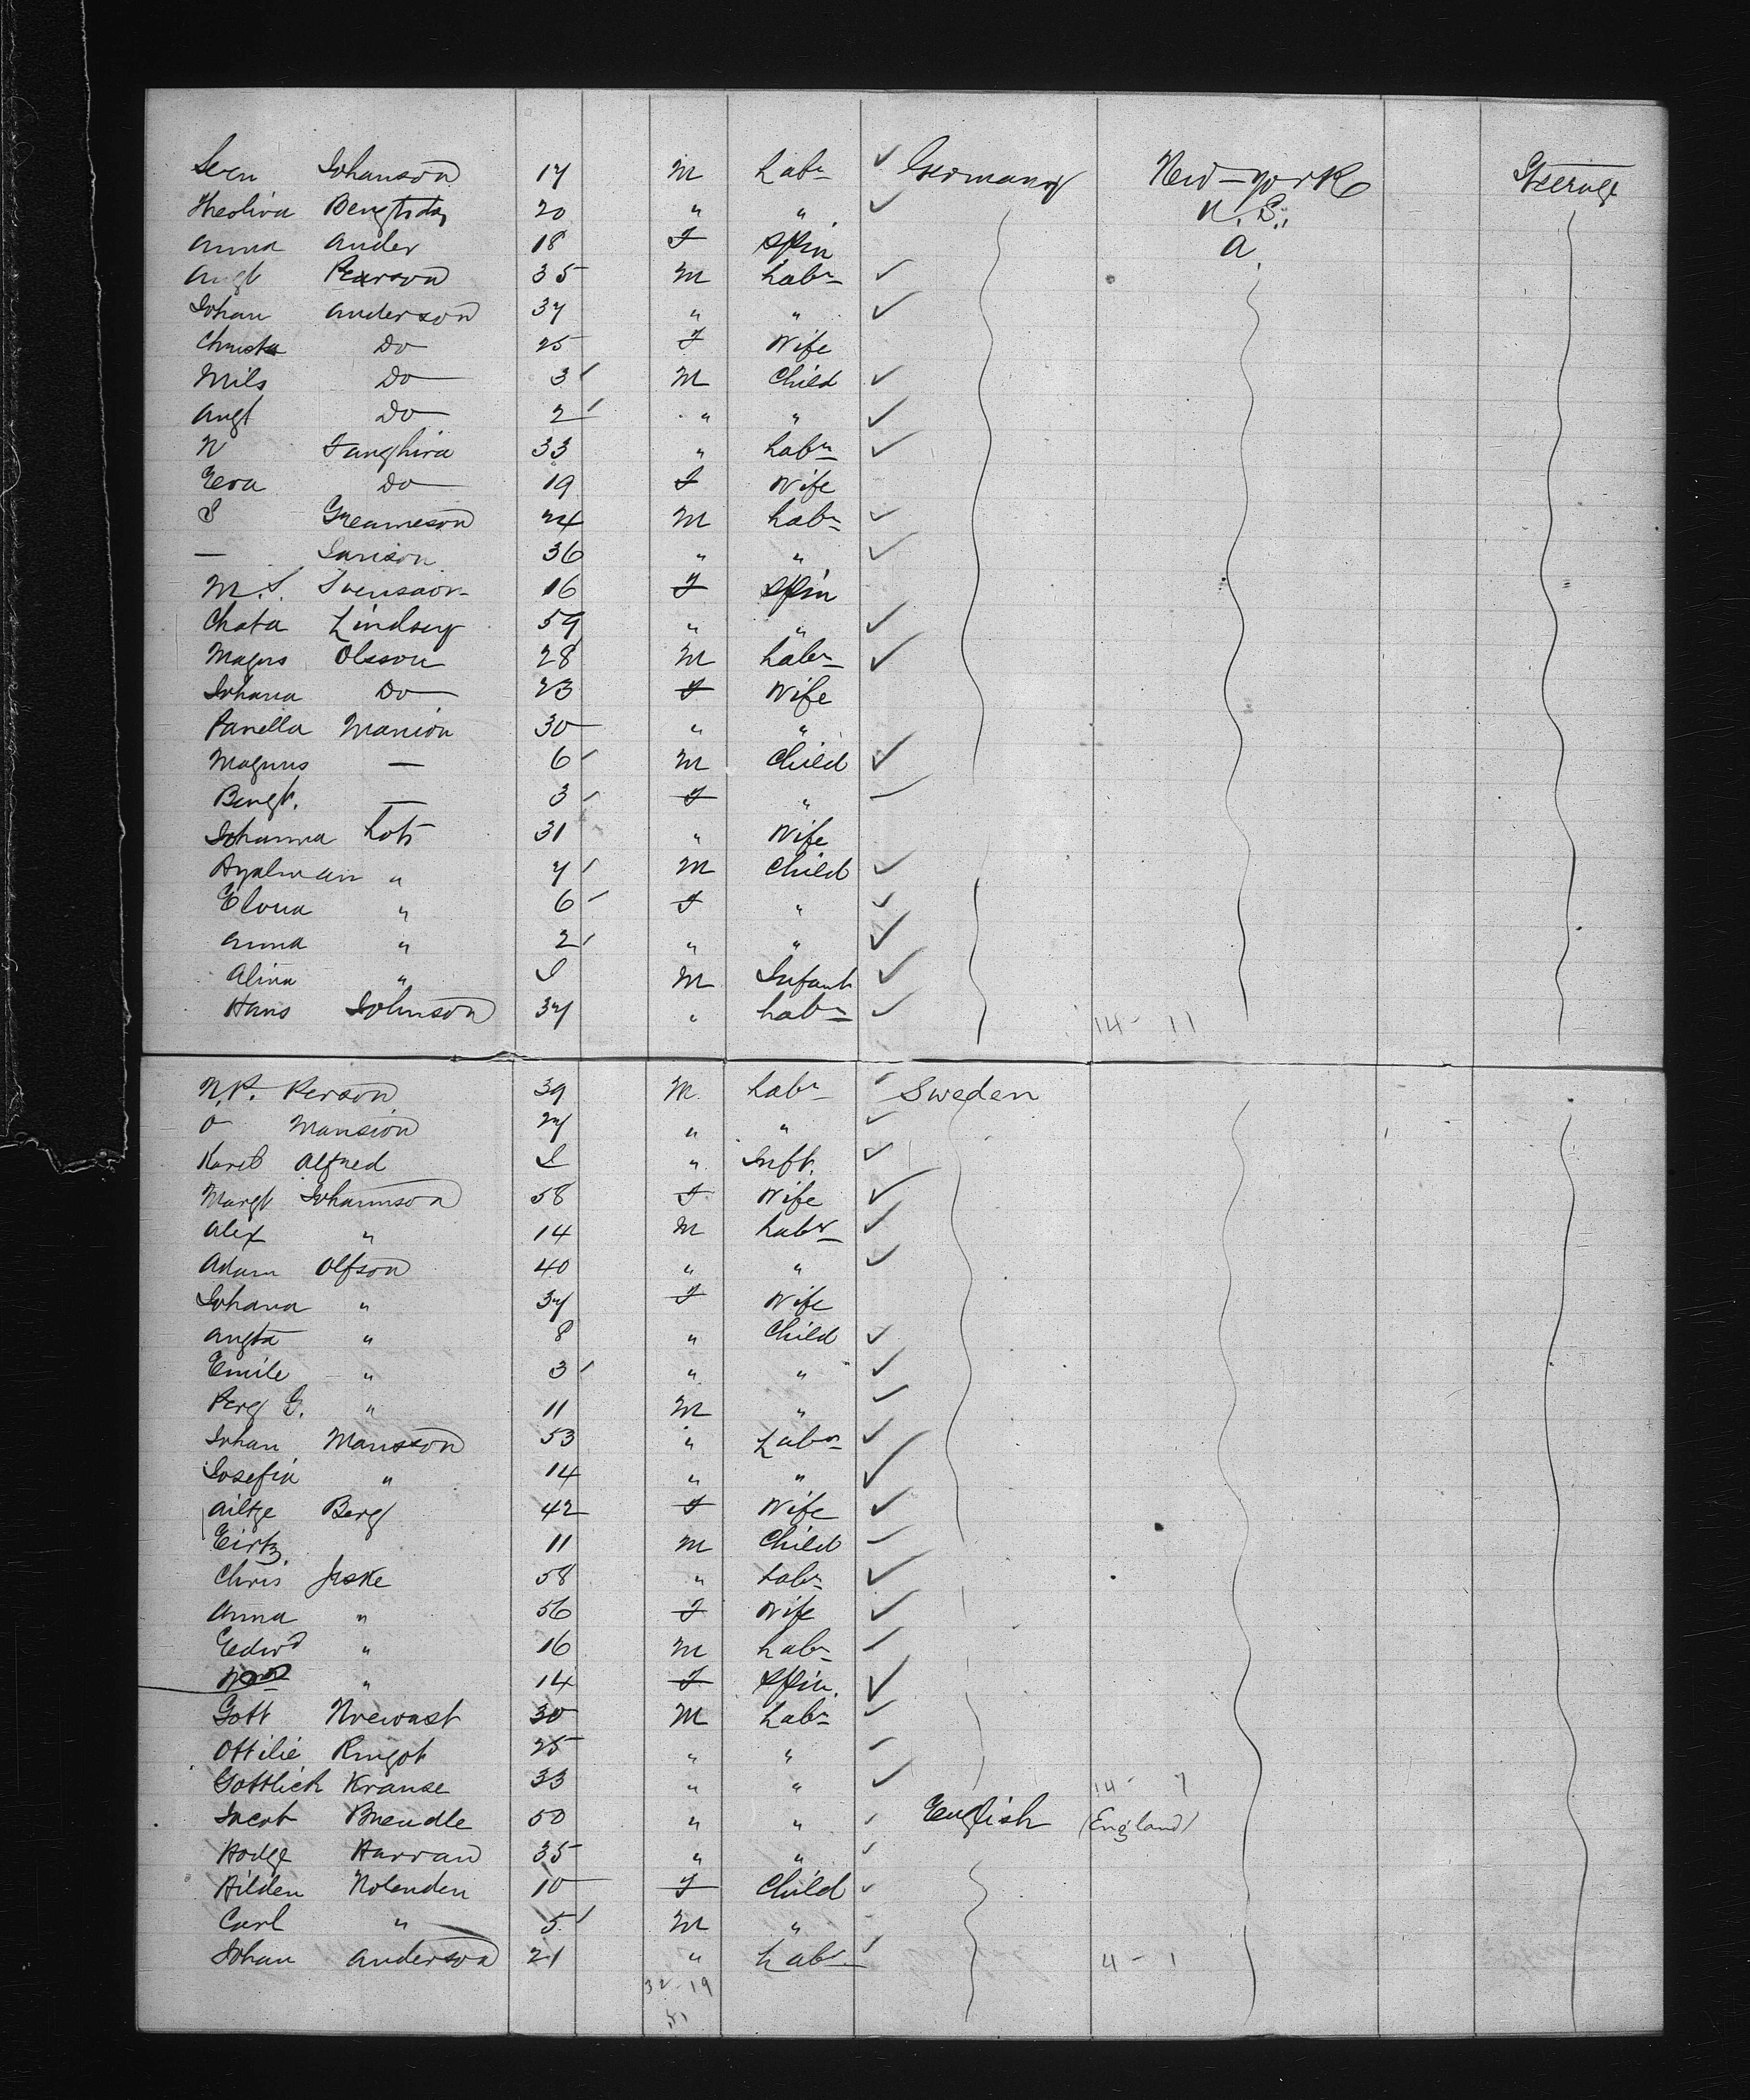 Sven Johanson 17 M Labr ✓ Germany New-York Steerage
Theoliva Bengtsdog 20 " " ✓ U.S.
Anna Ander 18 F Spin A
Augt Pearson 35 M Labr ✓
Johan Anderson 37 " " ✓
Christa Do 25 F Wife
Nils Do 3 M Child ✓
Augt Do 2 " " ✓
N Fanghira 33 " Labr ✓
Eva Do 19 F Wife
S Greameson 24 M Labr ✓
— Janison 36 " " ✓
M. S. Svensson 16 F Spin
Chata Lindsey 59 " " ✓
Magns Olsson 28 M Labr ✓
Johana Do 23 F Wife
Panella Manion 30 " "
Magnus — 6 M Child ✓
Bengt. — 3 F "
Johanna Lots 31 " Wife
Hyalman " 7 M Child ✓
Elona " 6 F " ✓
Anna " 2 " " ✓
Alina " I M Infant ✓
Hans Johnson 37 " Labr ✓ 14 - 11
N.P. Person 39 M Labr ✓ Sweden
O Mansion 27 " " ✓
Karel Alfred I " Inft. ✓
Margt Johannson 58 F Wife ✓
Alex " 14 M Labr ✓
Adam Olfson 40 " " ✓
Johana " 37 F Wife
Augta " 8 " Child ✓
Emile " 3 " " ✓
Perg G. " 11 M " ✓
Johan Mansson 53 " Labr ✓
Josefin " 14 " " ✓
Ailtze Berg 42 F Wife ✓
Eirtz 11 M Child
Chris Jeske 58 " Labr ✓
Anna " 56 F Wife ✓
Edwd " 16 M Labr ✓
" 14 F Spin. ✓
Gott Noewast 30 M Labr ✓
Ottilie Ringot 25 " " ✓
Gottlieb Krause 33 " " ✓ 14 - 7
Jacob Brendle 50 " " ✓ English (England)
Hodge Harran 35 " " ✓
Hilden Nolenden 10 F Child ✓
Carl " 5 M "
Johan Anderson 21 " Labr ✓ 4 - 1
32-19
51